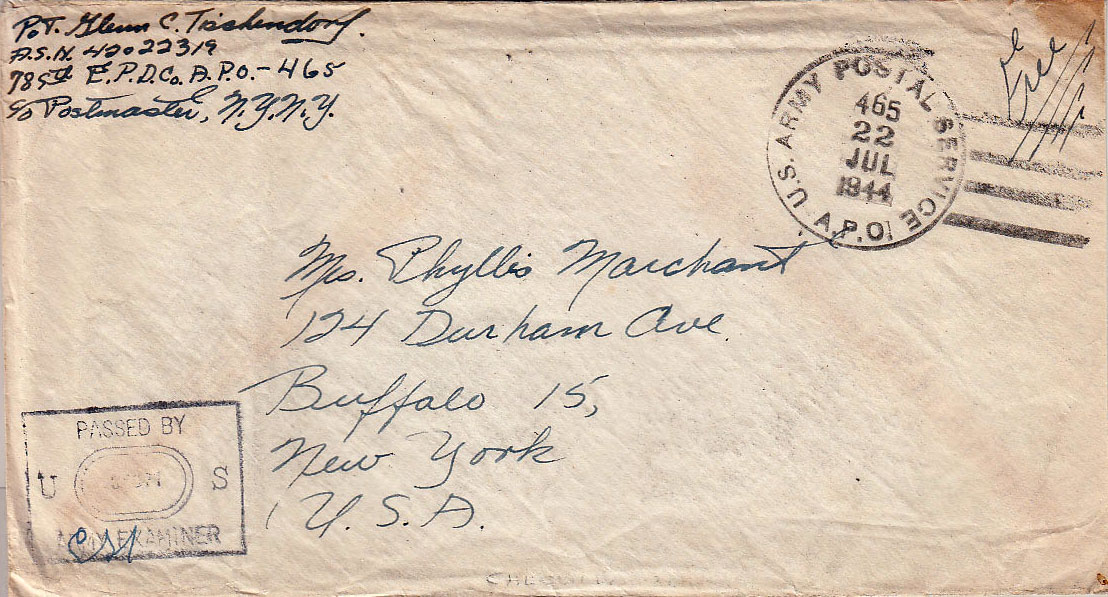 Pvt. Glenn C. Tischendorf.
A.S.N. 42022319
785th E.P.D.Co. A.P.O.-465
c/o Postmaster, N.Y.N.Y.
Free
U.S. ARMY POSTAL SERVICE
465
22
JUL
1944
A.P.O.
Mrs. Phyllis Marchant
124 Durham Ave.
Buffalo 15,
New York
U.S.A.
PASSED BY
U S
ARMY EXAMINER